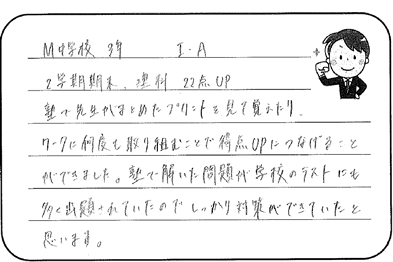 M中学校 3年 I.A
2学期期末 理科 22点UP
塾で先生がまとめたプリントを見て覚えたり、
ワークに何度も取り組むことで得点UPにつなげること
ができました。塾で解いた問題が学校のテストにも
多く出題されていたのでしっかり対策ができていたと
思います。